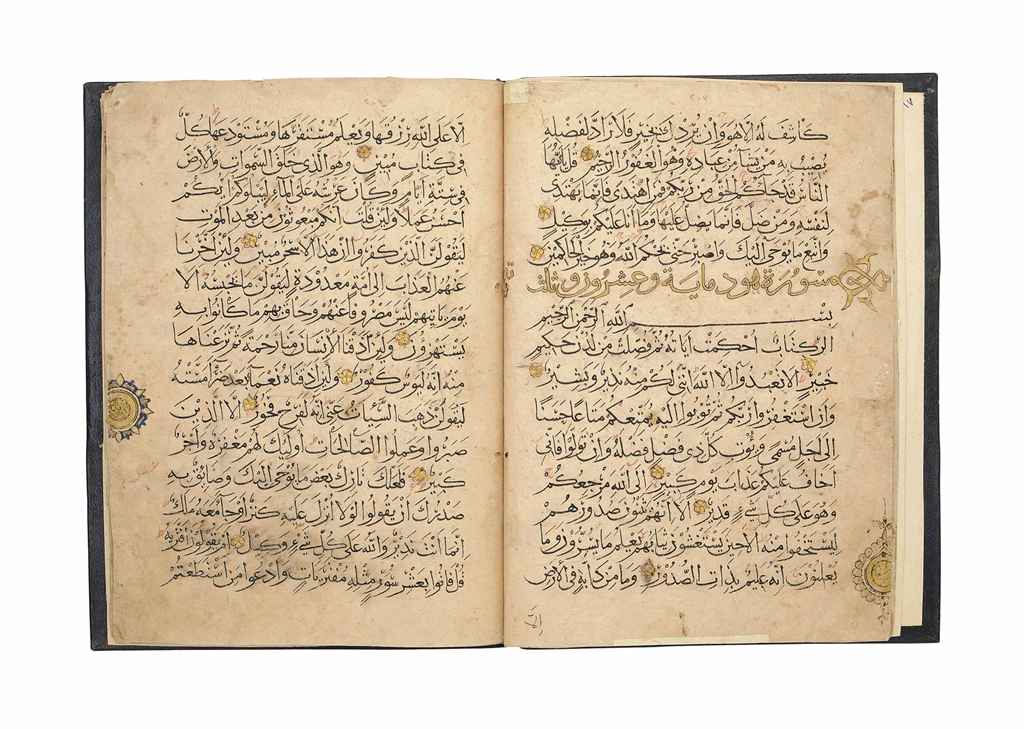 كاشف له الا هو وان يردك بخير فلا راد لفضله
يصيب به من يشا من عباده وهو الغفور الرحيم قل يايها
الناس قد جاكم الحق من ربكم فمن اهتدى فانما يهتدى
لنفسه ومن ضل فانما يضل عليها وما انا عليكم بوكيل
واتبع ما يوحى اليك واصبر حتى يحكم الله وهو خير الحاكمين
سورة هود ماية وعشرون وثلث
بسم الله الرحمن الرحيم
الر كتاب احكمت اياته ثم فصلت من لدن حكيم
خبير الا تعبدوا الا الله اننى لكم منه نذير وبشير
وان استغفروا ربكم ثم توبوا اليه يمتعكم متاعا حسنا
الى اجل مسمى ويوت كل ذى فضل فضله وان تولوا فانى
اخاف عليكم عذاب يوم كبير الى الله مرجعكم
وهو على كل شىء قدير الا انهم يثنون صدورهم
ليستخفوا منه الا حين يستغشون ثيابهم يعلم ما يسرون وما
يعلنون انه عليم بذات الصدور وما من دابة فى الارض
الا
الا على الله رزقها ويعلم مستقرها ومستودعها كل
فى كتاب مبين وهو الذى خلق السموات والارض
فى ستة ايام وكان عرشه على الماء ليبلوكم ايكم
احسن عملا ولئن قلت انكم مبعوثون من بعد الموت
ليقولن الذين كفروا ان هذا الا سحر مبين ولئن اخرنا
عنهم العذاب الى امة معدودة ليقولن ما يحبسه الا
يوم ياتيهم ليس مصروفا عنهم وحاق بهم ما كانوا به
يستهزون ولئن اذقنا الانسان منا رحمة ثم نزعناها
منه انه ليوس كفور ولئن اذقناه نعماء بعد ضراء مسته
ليقولن ذهب السيئات عنى انه لفرح فخور الا الذين
صبروا وعملوا الصالحات اوليك لهم مغفرة واجر
كبير فلعلك تارك بعض ما يوحى اليك وضائق به
صدرك ان يقولوا لولا انزل عليه كنز او جا معه ملك
انما انت نذير والله على كل شىء وكيل ام يقولون افتريه
قل فاتوا بعشر سور مثله مفتريات وادعوا من استطعتم